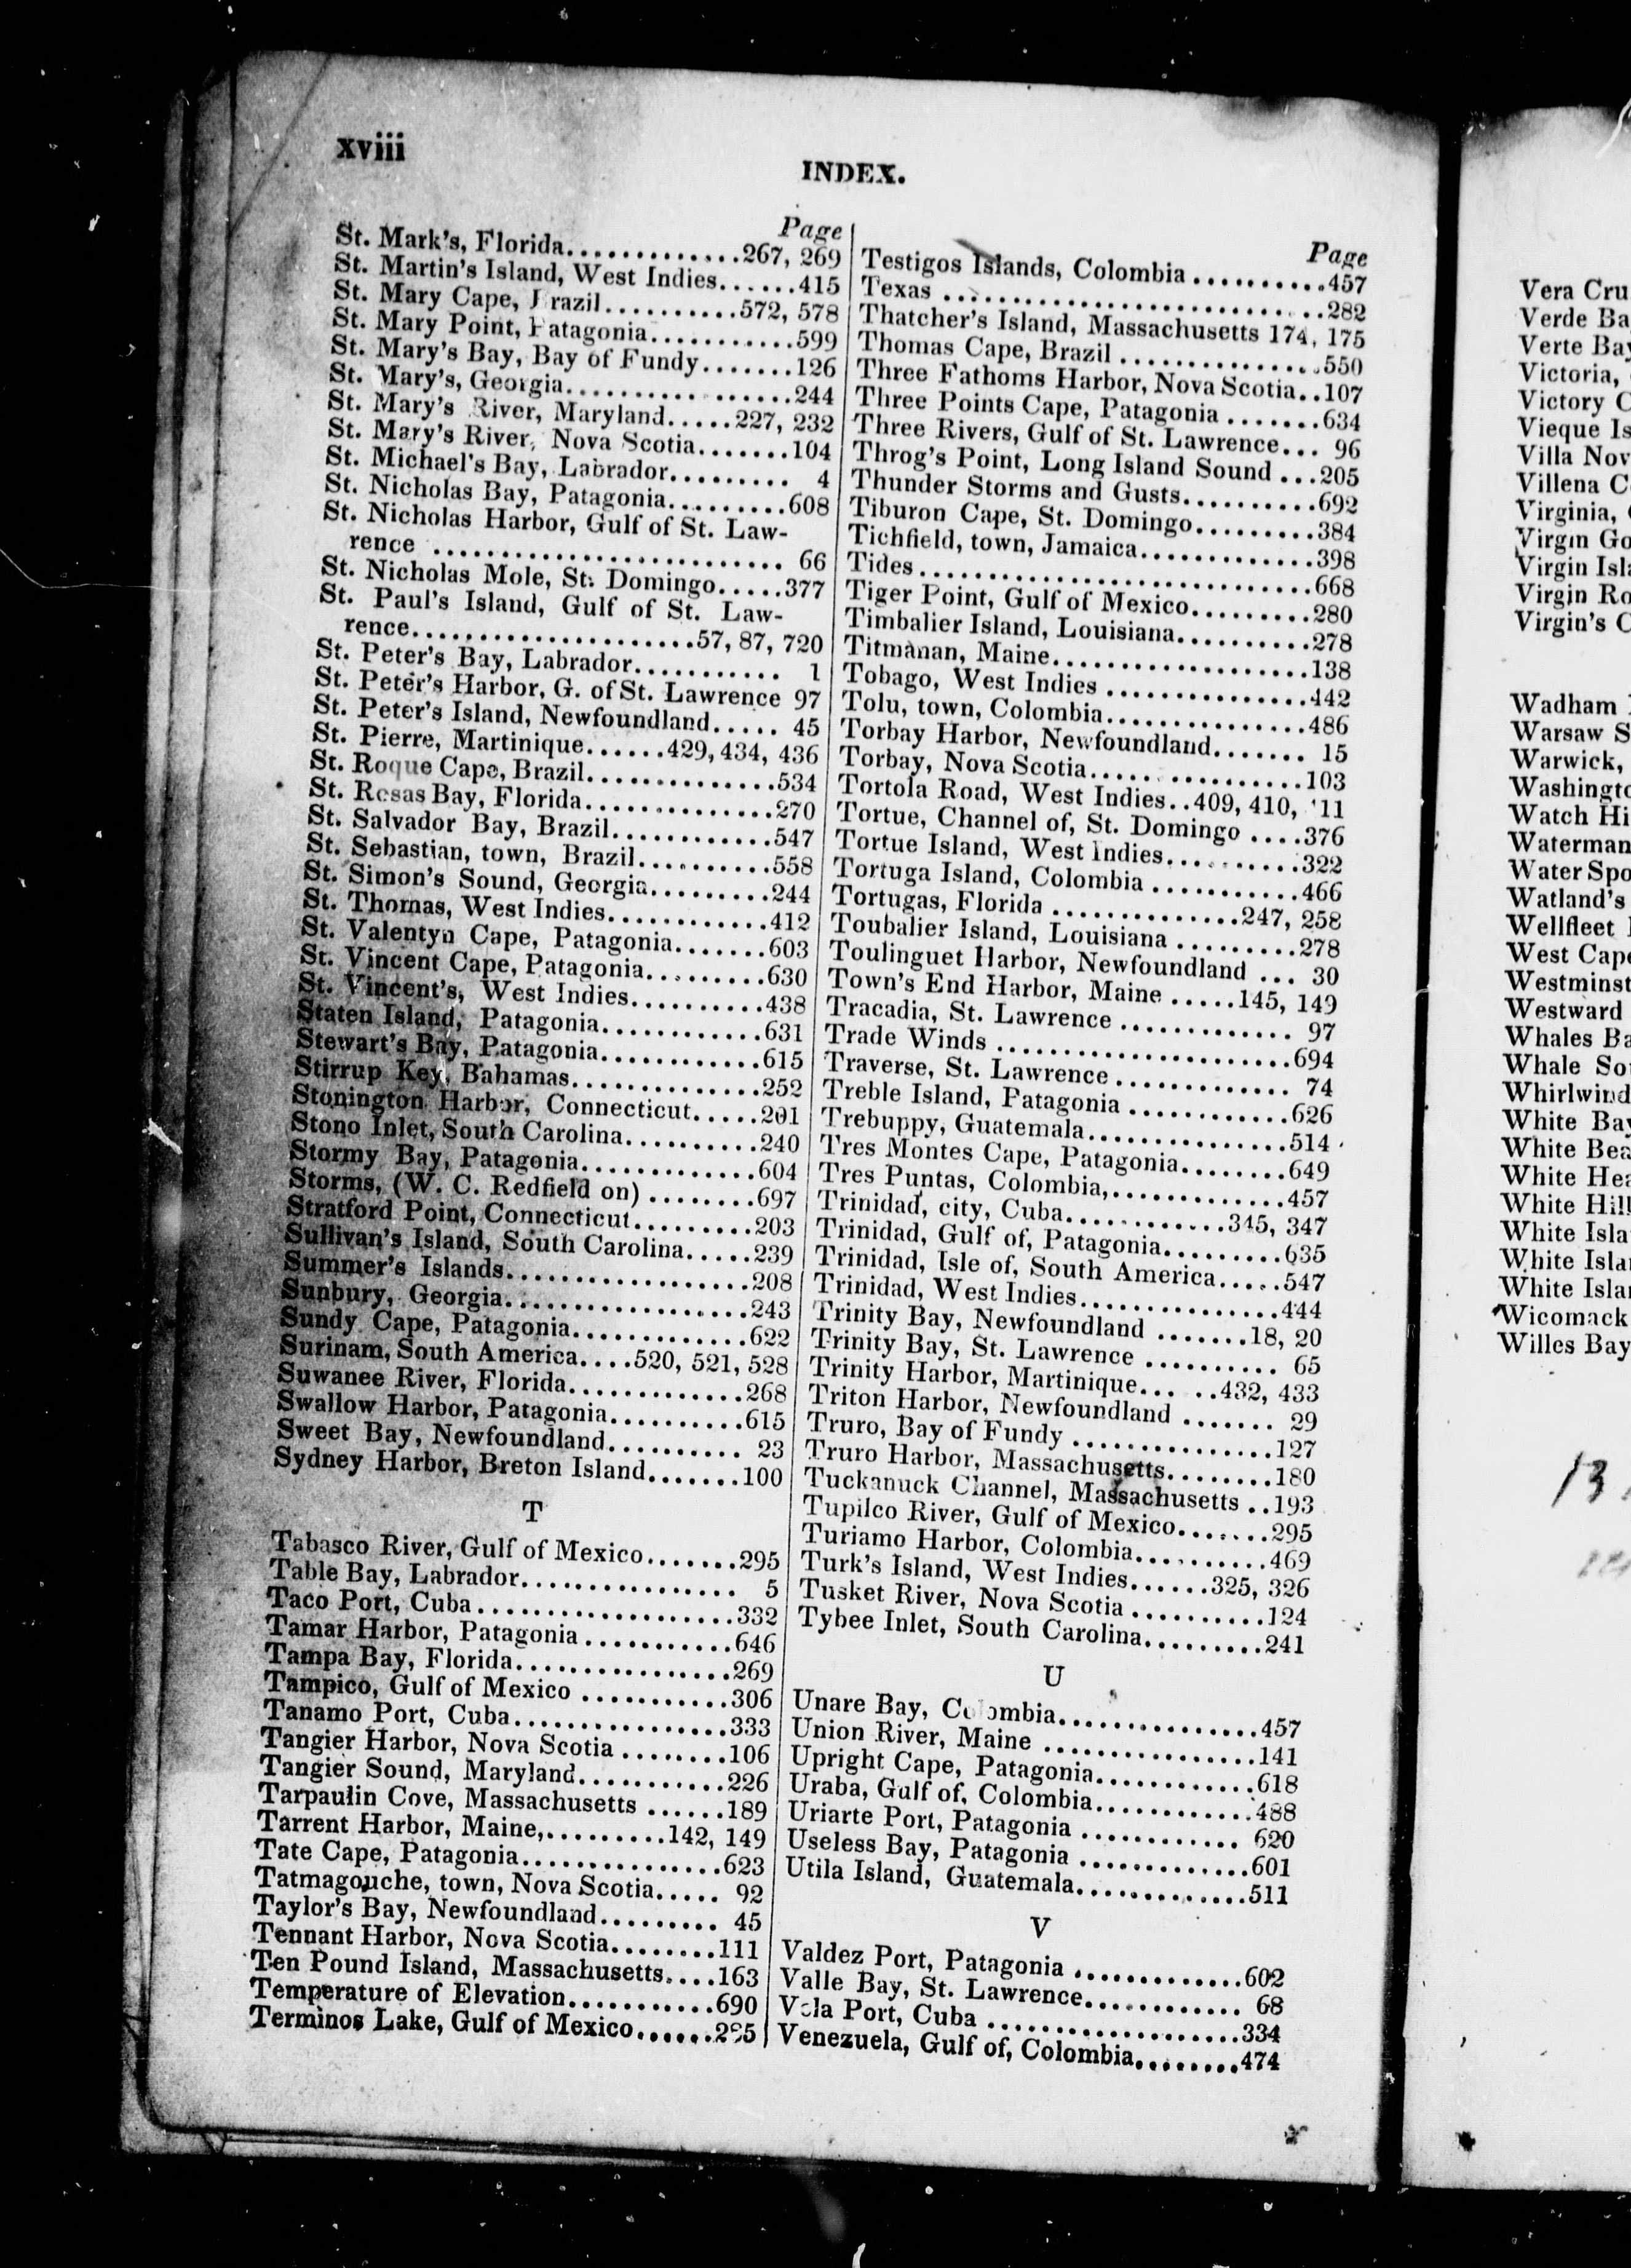 xviii
INDEX.
Page
St. Mark's, Florida.............267, 269
St. Martin's Island, West Indies......415
St. Mary Cape, Brazil..........572, 578
St. Mary Point, Patagonia...........599
St. Mary's Bay, Bay of Fundy.......126
St. Mary's, Georgia.................244
St. Mary's River, Maryland.....227, 232
St. Mary's River, Nova Scotia.......104
St. Michael's Bay, Labrador......... 4
St. Nicholas Bay, Patagonia.........608
St. Nicholas Harbor, Gulf of St. Law-
rence .......................... 66
St. Nicholas Mole, St. Domingo.....377
St. Paul's Island, Gulf of St. Law-
rence.....................57, 87, 720
St. Peter's Bay, Labrador........... 1
St. Peter's Harbor, G. of St. Lawrence 97
St. Peter's Island, Newfoundland..... 45
St. Pierre, Martinique......429, 434, 436
St. Roque Cape, Brazil..............534
St. Rosas Bay, Florida..............270
St. Salvador Bay, Brazil............547
St. Sebastian, town, Brazil..........558
St. Simon's Sound, Georgia.........244
St. Thomas, West Indies............412
St. Valentyn Cape, Patagonia.......603
St. Vincent Cape, Patagonia.........630
St. Vincent's, West Indies..........438
Staten Island, Patagonia............631
Stewart's Bay, Patagonia............615
Stirrup Key, Bahamas..............252
Stonington Harbor, Connecticut.....201
Stono Inlet, South Carolina..........240
Stormy Bay, Patagonia.............604
Storms, (W. C. Redfield on) ........697
Stratford Point, Connecticut.........203
Sullivan's Island, South Carolina.....239
Summer's Islands..................208
Sunbury, Georgia..................243
Sundy Cape, Patagonia.............622
Surinam, South America....520, 521, 528
Suwanee River, Florida.............268
Swallow Harbor, Patagonia..........615
Sweet Bay, Newfoundland.......... 23
Sydney Harbor, Breton Island.......100
T
Tabasco River, Gulf of Mexico.......295
Table Bay, Labrador................ 5
Taco Port, Cuba...................332
Tamar Harbor, Patagonia...........646
Tampa Bay, Florida................269
Tampico, Gulf of Mexico ...........306
Tanamo Port, Cuba................333
Tangier Harbor, Nova Scotia ........106
Tangier Sound, Maryland...........226
Tarpaulin Cove, Massachusetts ......189
Tarrent Harbor, Maine,.........142, 149
Tate Cape, Patagonia...............623
Tatmagouche, town, Nova Scotia..... 92
Taylor's Bay, Newfoundland......... 45
Tennant Harbor, Nova Scotia........111
Ten Pound Island, Massachusetts....163
Temperature of Elevation...........690
Terminos Lake, Gulf of Mexico......
Page
Testigos Islands, Colombia..........457
Texas ............................282
Thatcher's Island, Massachusetts 174, 175
Thomas Cape, Brazil ...............550
Three Fathoms Harbor, Nova Scotia..107
Three Points Cape, Patagonia.......634
Three Rivers, Gulf of St. Lawrence... 96
Throg's Point, Long Island Sound ...205
Thunder Storms and Gusts..........692
Tiburon Cape, St. Domingo.........384
Tichfield, town, Jamaica.............398
Tides.............................668
Tiger Point, Gulf of Mexico.........280
Timbalier Island, Louisiana..........278
Titmanan, Maine...................138
Tobago, West Indies ...............442
Tolu, town, Colombia...............486
Torbay Harbor, Newfoundland....... 15
Torbay, Nova Scotia................103
Tortola Road, West Indies..409, 410,
Tortue, Channel of, St. Domingo ....376
Tortue Island, West Indies..........322
Tortuga Island, Colombia ...........466
Tortugas, Florida ..............247, 258
Toubalier Island, Louisiana .........278
Toulinguet Harbor, Newfoundland ... 30
Town's End Harbor, Maine .....145, 149
Tracadia, St. Lawrence ............. 97
Trade Winds ......................694
Traverse, St. Lawrence ............. 74
Treble Island, Patagonia ............626
Trebuppy, Guatemala...............514
Tres Montes Cape, Patagonia........649
Tres Puntas, Colombia,.............457
Trinidad, city, Cuba............345, 347
Trinidad, Gulf of, Patagonia.........635
Trinidad, Isle of, South America.....547
Trinidad, West Indies...............444
Trinity Bay, Newfoundland .......18, 20
Trinity Bay, St. Lawrence .......... 65
Trinity Harbor, Martinique......432, 433
Triton Harbor, Newfoundland ....... 29
Truro, Bay of Fundy ...............127
Truro Harbor, Massachusetts........180
Tuckanuck Channel, Massachusetts ..193
Tupilco River, Gulf of Mexico.......295
Turiamo Harbor, Colombia..........469
Turk's Island, West Indies......325, 326
Tusket River, Nova Scotia ..........124
Tybee Inlet, South Carolina.........241
U
Unare Bay, Colombia...............457
Union River, Maine ................141
Upright Cape, Patagonia............618
Uraba, Gulf of, Colombia............488
Uriarte Port, Patagonia ............ 620
Useless Bay, Patagonia .............601
Utila Island, Guatemala.............511
V
Valdez Port, Patagonia .............602
Valle Bay, St. Lawrence............ 68
Vela Port, Cuba ...................334
Venezuela, Gulf of, Colombia........474
Vera Cru
Verde Ba
Verte Bay
Victoria,
Victory C
Vieque Is
Villa Nov
Villena C
Virginia,
Virgin Go
Virgin Isla
Virgin Ro
Virgin's C
Wadham
Warsaw S
Warwick,
Washingto
Watch Hi
Waterman
Water Spo
Watland's
Wellfleet
West Cape
Westminst
Westward
Whales Ba
Whale So
Whirlwind
White Bay
White Bea
White Hea
White Hill
White Isla
White Islan
White Islan
Wicomack
Willes Bay
13